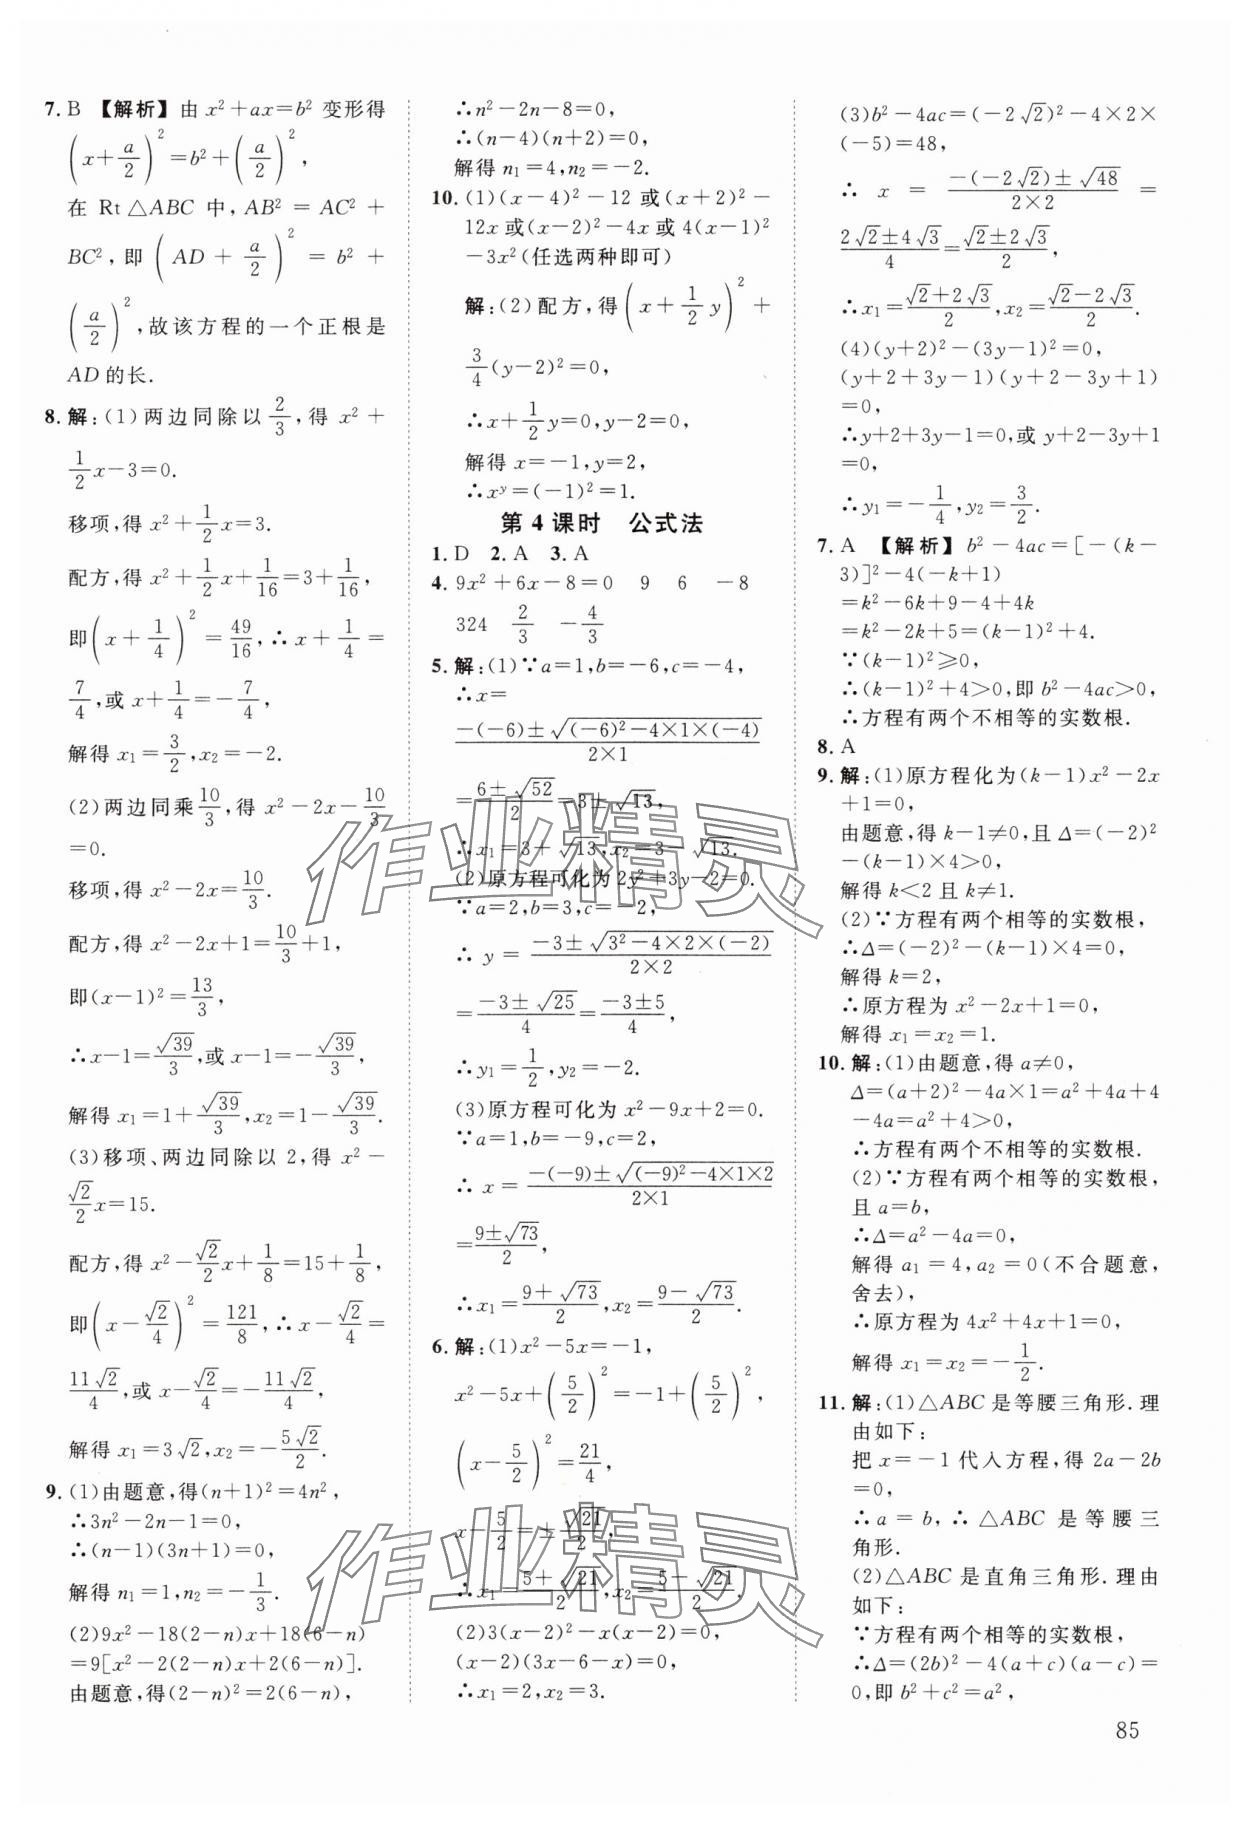 7. B 【解析】由 x²+ax=b² 变形得
(x+a/2)²=b²+(a/2)²,
在 Rt△ABC 中,AB²=AC²+
BC²,即(AD+a/2)²=b²+
(a/2)²,故该方程的一个正根是
AD的长.
8. 解:(1)两边同除以2/3,得 x²+
1/2x-3=0.
移项,得 x²+1/2x=3.
配方,得 x²+1/2x+1/16=3+1/16,
即(x+1/4)²=49/16,∴x+1/4=
7/4,或x+1/4=-7/4,
解得 x₁=3/2,x₂=-2.
(2)两边同乘10/3,得 x²-2x-10/3
=0.
移项,得 x²-2x=10/3.
配方,得 x²-2x+1=10/3+1,
即(x-1)²=13/3,
∴x-1=√39/3,或x-1=-√39/3,
解得 x₁=1+√39/3,x₂=1-√39/3.
(3)移项、两边同除以 2,得 x²-
√2/2x=15.
配方,得 x²-√2/2x+1/8=15+1/8,
即(x-√2/4)²=121/8,∴x-√2/4=
11√2/4,或x-√2/4=-11√2/4,
解得 x₁=3√2,x₂=-5√2/2.
9. (1)由题意,得(n+1)²=4n²,
∴3n²-2n-1=0,
∴(n-1)(3n+1)=0,
解得 n₁=1,n₂=-1/3.
(2)9x²-18(2-n)x+18(6-n)
=9[x²-2(2-n)x+2(6-n)].
由题意,得(2-n)²=2(6-n),
∴n²-2n-8=0,
∴(n-4)(n+2)=0,
解得 n₁=4,n₂=-2.
10. (1)(x-4)²-12 或(x+2)²-
12x或(x-2)²-4x或 4(x-1)²
-3x²(任选两种即可)
解:(2)配方,得(x+1/2y)²+
3/4(y-2)²=0,
∴x+1/2y=0,y-2=0,
解得 x=-1,y=2,
∴xʸ=(-1)²=1.
第 4 课时 公式法
1. D 2. A 3. A
4. 9x²+6x-8=0 9 6 -8
324 2/3 -4/3
5. 解:(1)∵a=1,b=-6,c=-4,
∴x=
-(-6)±√((-6)²-4×1×(-4))/2×1
=6±√52/2=3±√13,
∴x₁=3+√13,x₂=3-√13.
(2)原方程可化为2y²+3y-2=0.
∵a=2,b=3,c=-2,
∴y=-3±√(3²-4×2×(-2))/2×2
=-3±√25/4=-3±5/4,
∴y₁=1/2,y₂=-2.
(3)原方程可化为 x²-9x+2=0.
∵a=1,b=-9,c=2,
∴x=-(-9)±√((-9)²-4×1×2)/2×1
=9±√73/2,
∴x₁=9+√73/2,x₂=9-√73/2.
6. 解:(1)x²-5x=-1,
x²-5x+(5/2)²=-1+(5/2)²,
(x-5/2)²=21/4,
x-5/2=±√21/2,
∴x₁=5+√21/2,x₂=5-√21/2.
(2)3(x-2)²-x(x-2)=0,
(x-2)(3x-6-x)=0,
∴x₁=2,x₂=3.
(3)b²-4ac=(-2√2)²-4×2×
(-5)=48,
∴x=-(-2√2)±√48/2×2=
2√2±4√3/4=√2±2√3/2,
∴x₁=√2+2√3/2,x₂=√2-2√3/2.
(4)(y+2)²-(3y-1)²=0,
(y+2+3y-1)(y+2-3y+1)
=0,
∴y+2+3y-1=0,或y+2-3y+1
=0,
∴y₁=-1/4,y₂=3/2.
7. A 【解析】b²-4ac=[-(k-
3)]²-4(-k+1)
=k²-6k+9-4+4k
=k²-2k+5=(k-1)²+4.
∵(k-1)²≥0,
∴(k-1)²+4>0,即 b²-4ac>0,
∴方程有两个不相等的实数根.
8. A
9. 解:(1)原方程化为(k-1)x²-2x
+1=0,
由题意,得 k-1≠0,且 Δ=(-2)²
-(k-1)×4>0,
解得 k<2 且 k≠1.
(2)∵方程有两个相等的实数根,
∴Δ=(-2)²-(k-1)×4=0,
解得 k=2,
∴原方程为 x²-2x+1=0,
解得 x₁=x₂=1.
10. 解:(1)由题意,得 a≠0,
Δ=(a+2)²-4a×1=a²+4a+4
-4a=a²+4>0,
∴方程有两个不相等的实数根.
(2)∵方程有两个相等的实数根,
且 a=b,
∴Δ=a²-4a=0,
解得 a₁=4,a₂=0(不合题意,
舍去),
∴原方程为 4x²+4x+1=0,
解得 x₁=x₂=-1/2.
11. 解:(1)△ABC是等腰三角形.理
由如下:
把 x=-1 代入方程,得 2a-2b
=0,
∴a=b,∴△ABC 是等腰三
角形.
(2)△ABC是直角三角形.理由
如下:
∵方程有两个相等的实数根,
∴Δ=(2b)²-4(a+c)(a-c)=
0,即 b²+c²=a²,
85
作业精灵
作业精灵